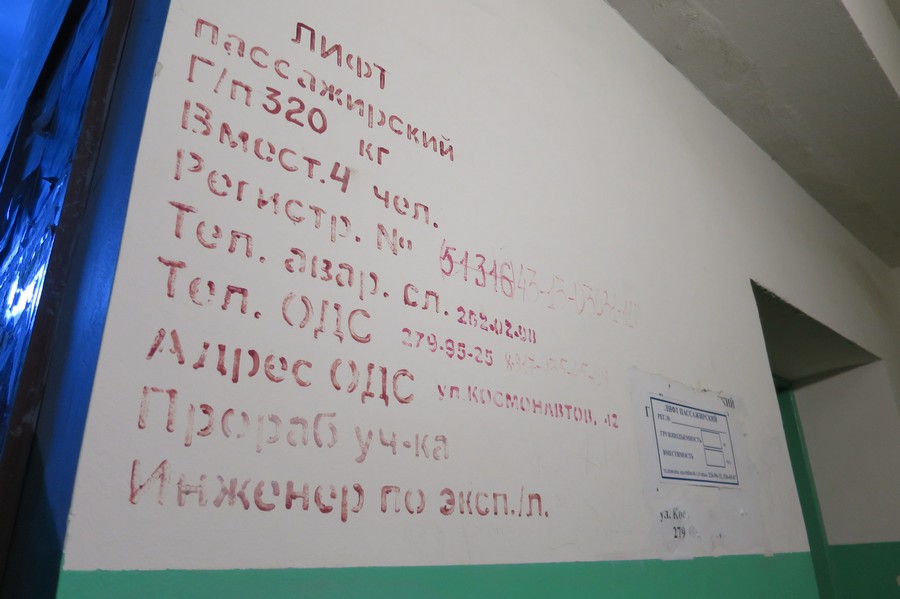 ЛИФТ
пассажирский
Г/п 320 кг
Вмест. 4 чел.
Регистр. № 51316
Тел. авар. сл. 262-02-90
Тел. ОДС 279-95-25
Адрес ОДС ул. КОСМОНАВТОВ, 42
Прораб уч-ка
Инженер по эксп./л.
ЛИФТ ПАССАЖИРСКИЙ
РЕГ. №
ГРУЗОПОДЪЕМНОСТЬ
ВМЕСТИМОСТЬ
ул. Кос
279